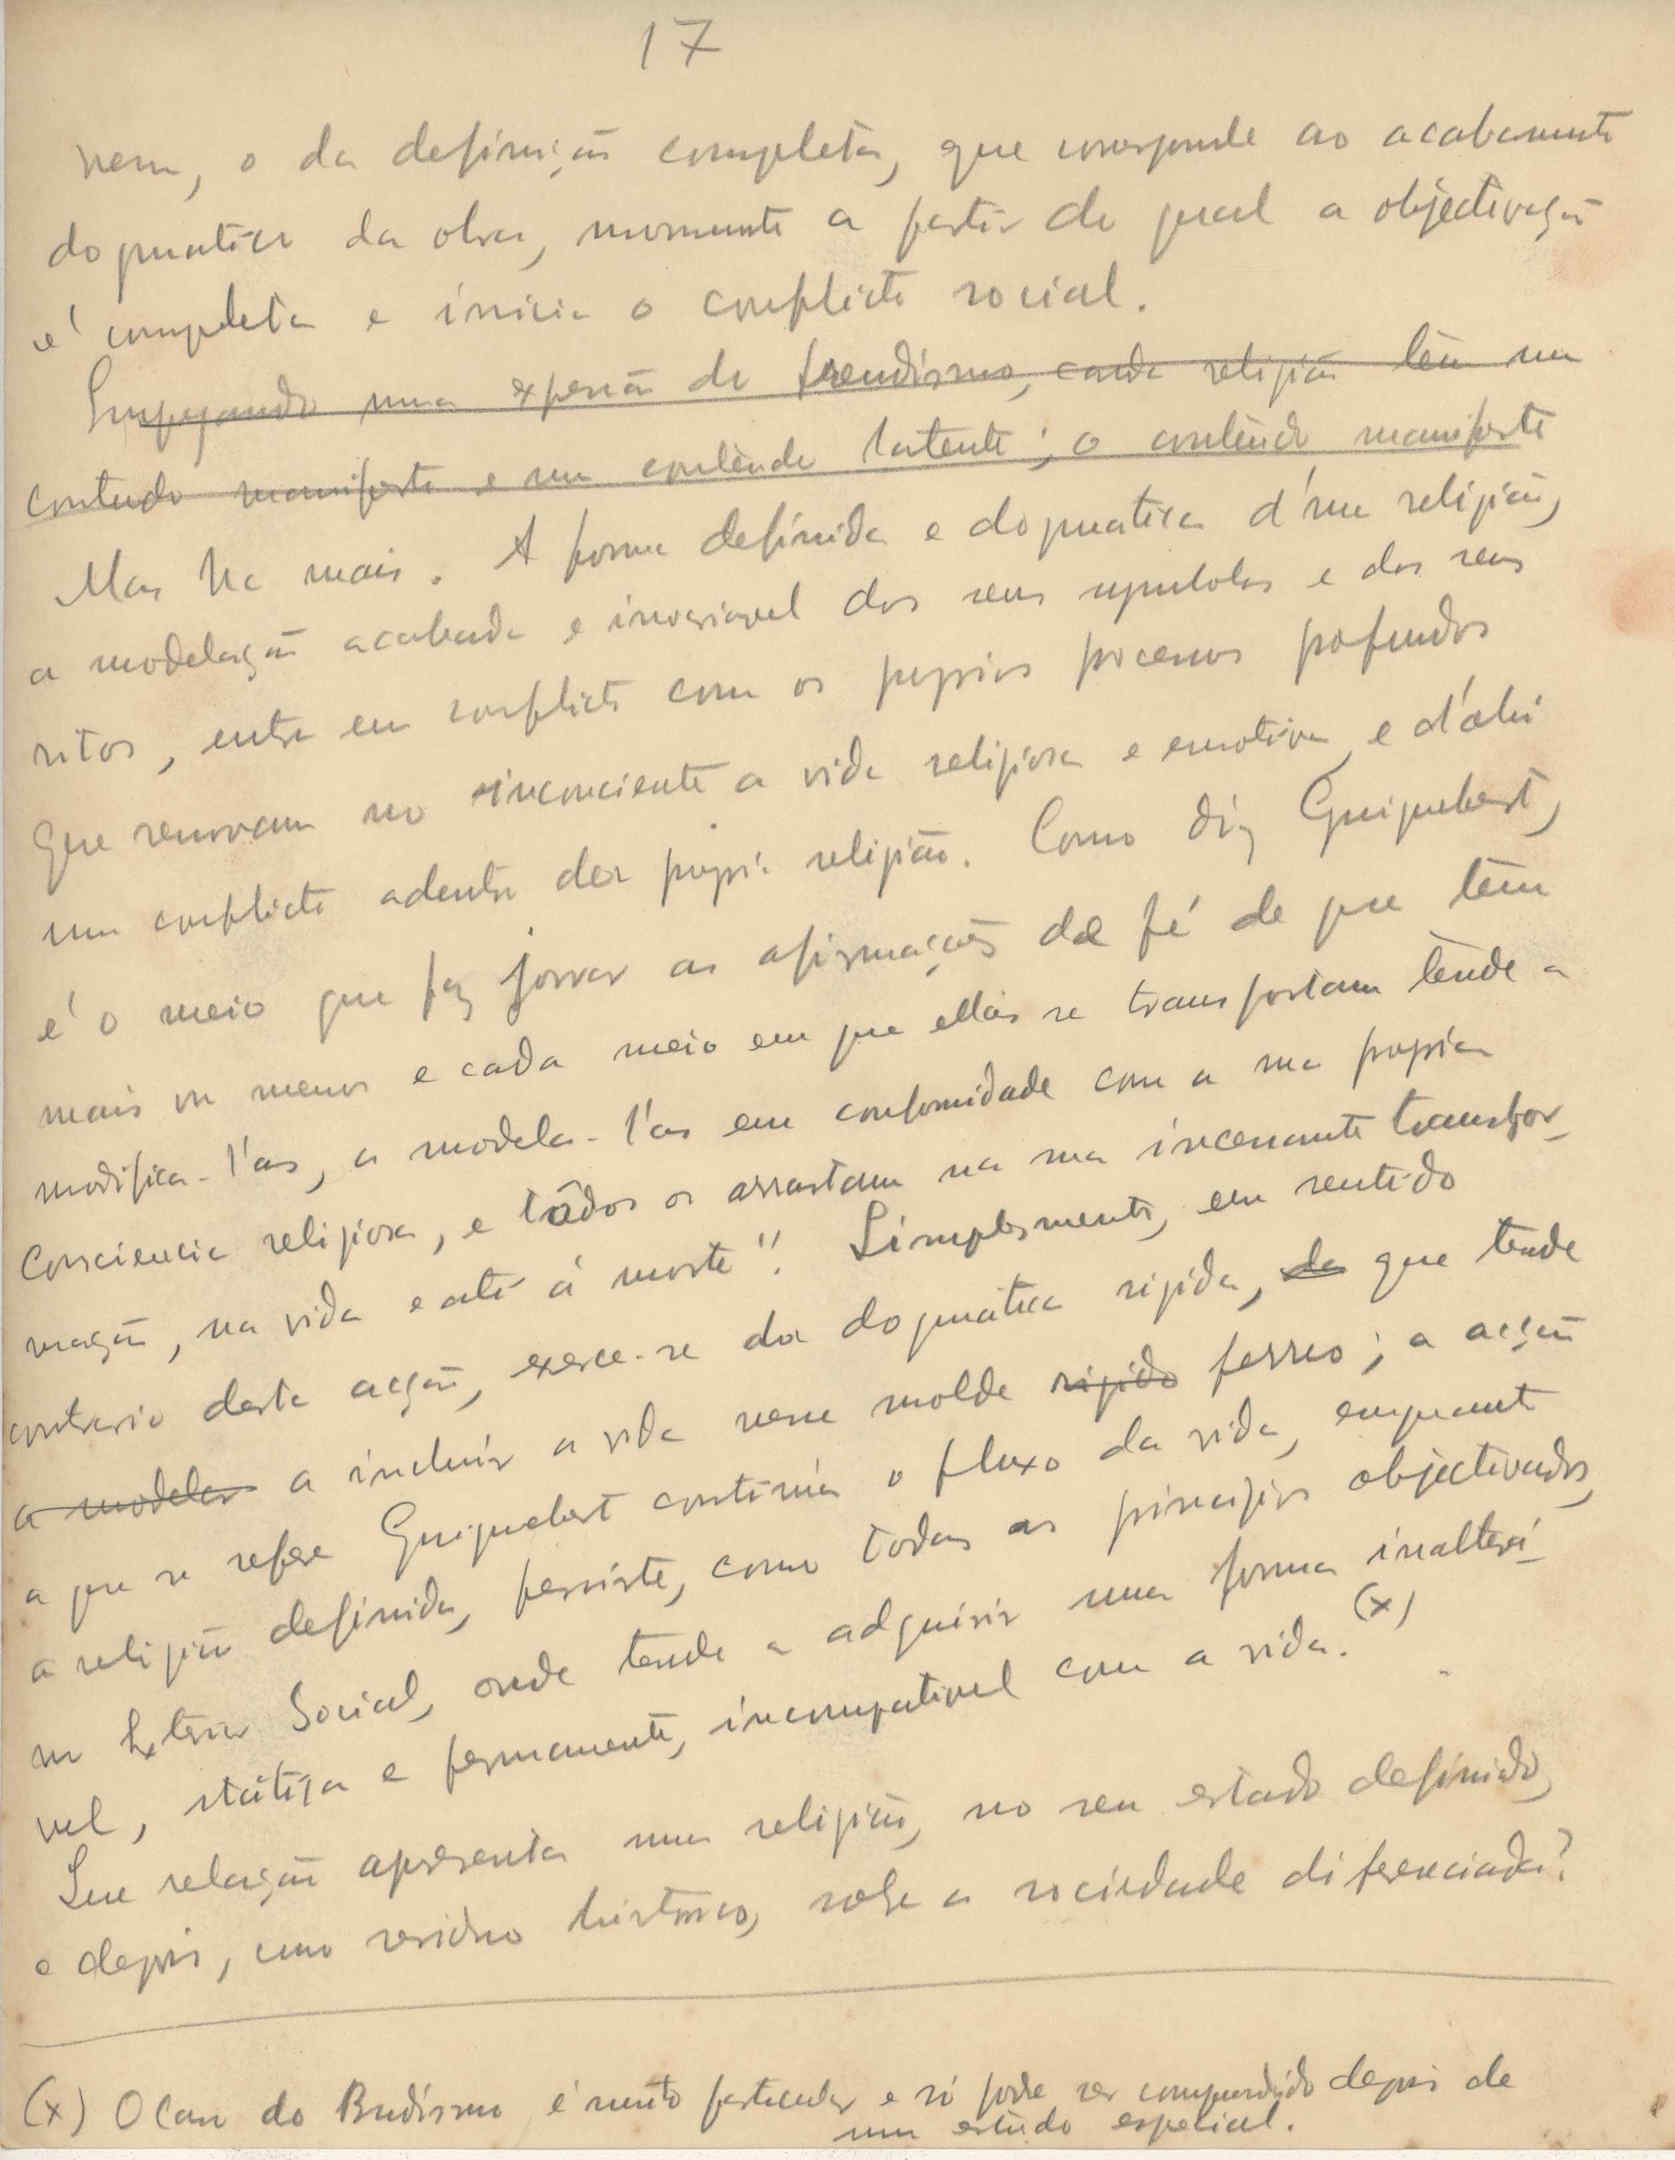 17
nem, o da definição completa, que corresponde ao acabamento
dogmatico da obra, momento a partir do qual a objectivação
é completa e inicia o conflicto social.
Empregando uma expressão do freudismo, cada religião tem um
contudo manifesto e um conteúdo latente; o conteúdo manifesto
Mas ha mais. A forma definida e dogmatica d'uma religião,
a modelação acabada e invariavel dos seus symbolos e dos seus
ritos, entra em conflicto com os proprios processos profundos
que renovam no inconciente a vida religiosa e emotiva, e d'ahi
um conflicto adentro da propria religião. Como diz Guignebert,
é o meio que faz jorrar as afirmações de fé de que tem
mais ou menos e cada meio em que ellas se transportam tende a
modifica-l'as, a modela-l'as em conformidade com a sua propria
consciencia religiosa, e tôdos os arrastam na sua incessante transfor-
mação, na vida e até á morte". Simplesmente, em sentido
contrario desta acção, exerce-se da dogmática rigida, da que tende
a modelar a incluir a vida nesse molde rigido ferreo; a acção
a que se refere Guignebert continúa o fluxo da vida, emquanto
a religião definida, persiste, como todos os principios objectivados,
no Exterior Social, onde tende a adquirir uma forma inalterá-
vel, státiça e permanente, incompativel com a vida. (x)
Que relação apresenta uma religião, no seu estado definido,
e depois, como residuo historico, sobre a sociedade diferenciada?
(x) O caso do Budismo é muito particular e só pode ser comprendido depois de
um estudo especial.